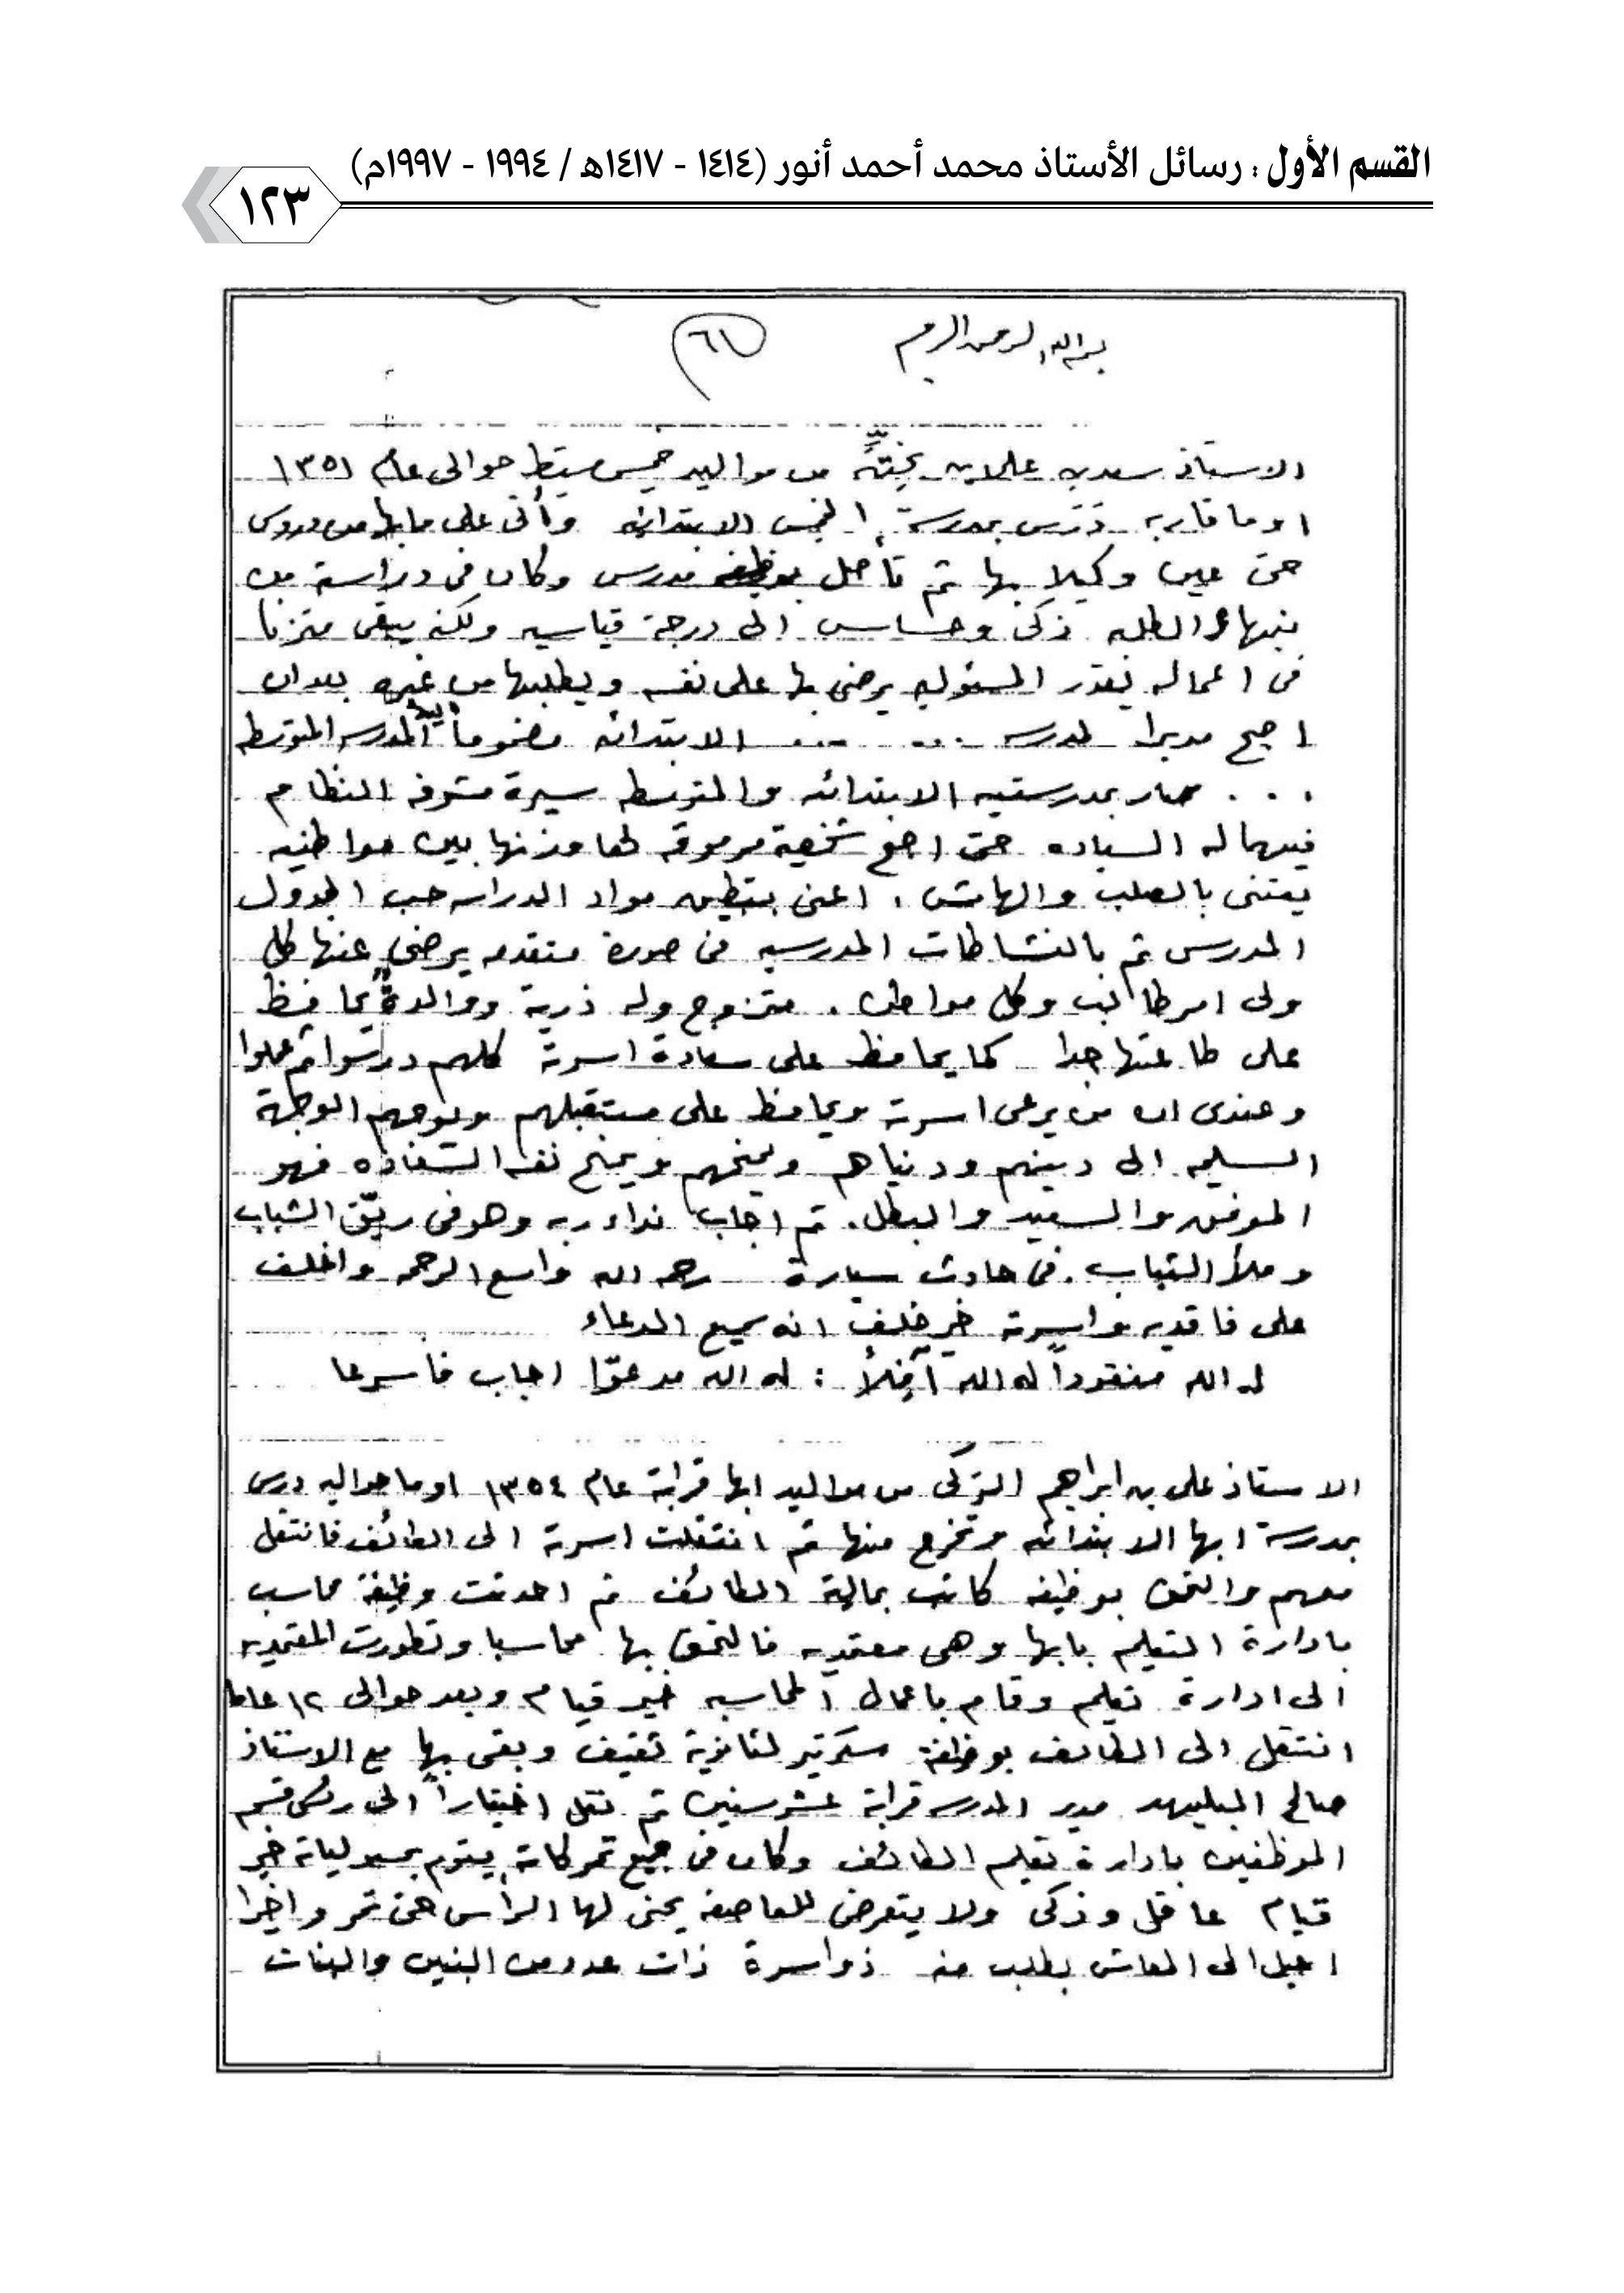 القسم الأول : رسائل الأستاذ محمد أحمد أنور (١٤١٤ - ١٤١٧هـ / ١٩٩٤ - ١٩٩٧م)
١٢٣
بسم الله الرحمن الرحيم
٦١
الاستاذ سعد بن علي من مواليد خميس مشيط حوالى عام ١٣٥١
او ما قاربه درس بمدرسة الخميس الابتدائيه وأتى على ما بها من دروس
حتى عين وكيلا بها ثم تأهل بوظيفه مدرس وكان فى دراسته من
نبهاء الطلبه ذكى وحساس الى درجة قياسيه ولكنه يبقى متزنا
فى اعماله يقدر المسئوليه يرضى بها على نفسه ويطلبها من غيره بعد ان
اصبح مديرا لمدرسه ... ... الابتدائه مضموماً اليها المدرسه المتوسطه
... سار بمدرستيه الابتدائه والمتوسطه سيرة مشرفه النظام
فيهما له السياده حتى اصبح شخصية مرموقه لها وزنها بين مواطنيه
يعتنى بالصلب والهامش ، اعنى بتطبيق مواد الدراسه حسب الجدول
المدرسى ثم بالنشاطات المدرسيه فى صورة متقدمه يرضى عنها كل
ولى امر طالب وكل مواطن . متزوج وله ذرية ووالدة يحافظ
على طاعتها جدا كما يحافظ على سعادة اسرته كلهم درسوا ثم عملوا
وعندى ان من يرعى اسرته ويحافظ على مستقبلهم ويوجههم الوجهة
السليمه الى دينهم ودنياهم ويمنحهم ويمنح نفسه السعاده فهو
الموفق والسعيد والبطل. ثم اجاب نداء ربه وهو فى ريّق الشباب
وملأ الشباب . فى حادث سيارة رحمه الله واسع الرحمه واخلف
على فاقديه واسرته خير خلف انه سميع الدعاء
له الله مفقوداً له الله آفلاً : له الله مدعوّا اجاب فأسرعا
الاستاذ على بن ابراهيم التركى من مواليد ابها قرابة عام ١٣٥٤ او ما حواليه درس
بمدرسة ابها الابتدائه وتخرج منها ثم انتقلت اسرته الى الطائف فانتقل
معهم والتحق بوظيفه كاتب بمالية الطائف ثم احدثت وظيفة محاسب
بادارة التعليم بابها وهى معتمديه فالتحق بها محاسبا وتطورت المعتمديه
الى ادارة تعليم وقام باعمال المحاسبه خير قيام وبعد حوالى ١٢ عاما
انتقل الى الطائف بوظيفة سكرتير لثانوية ثقيف وبقى بها مع الاستاذ
صالح مدير المدرسه قرابة عشر سنين ثم نقل اختياراً الى رئيس قسم
الموظفين بادارة تعليم الطائف وكان فى جميع تحركاته يقوم بمسولياته خير
قيام عاقل وذكى ولا يتعرض للعاصفه يحنى لها الرأس حتى تمر واخيرا
احيل الى المعاش بطلب منه ذو اسرة ذات عدد من البنين والبنات